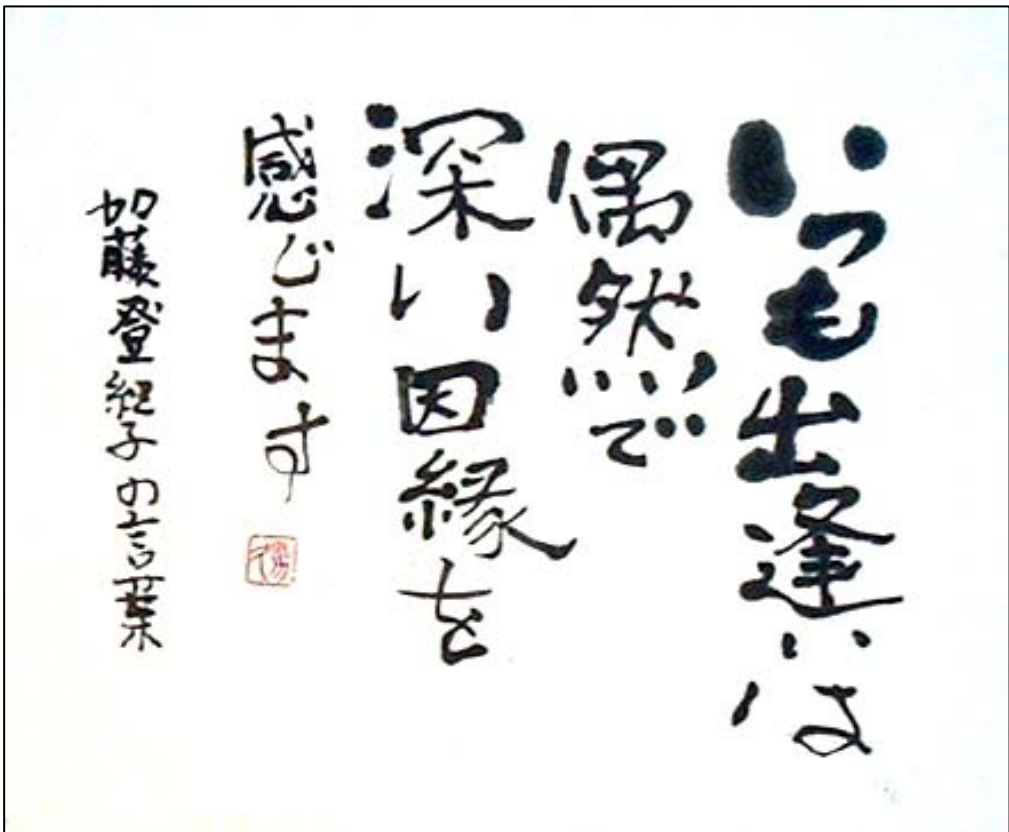 いつも出逢いは
偶然で
深い因縁を
感じます
加藤登紀子の言葉